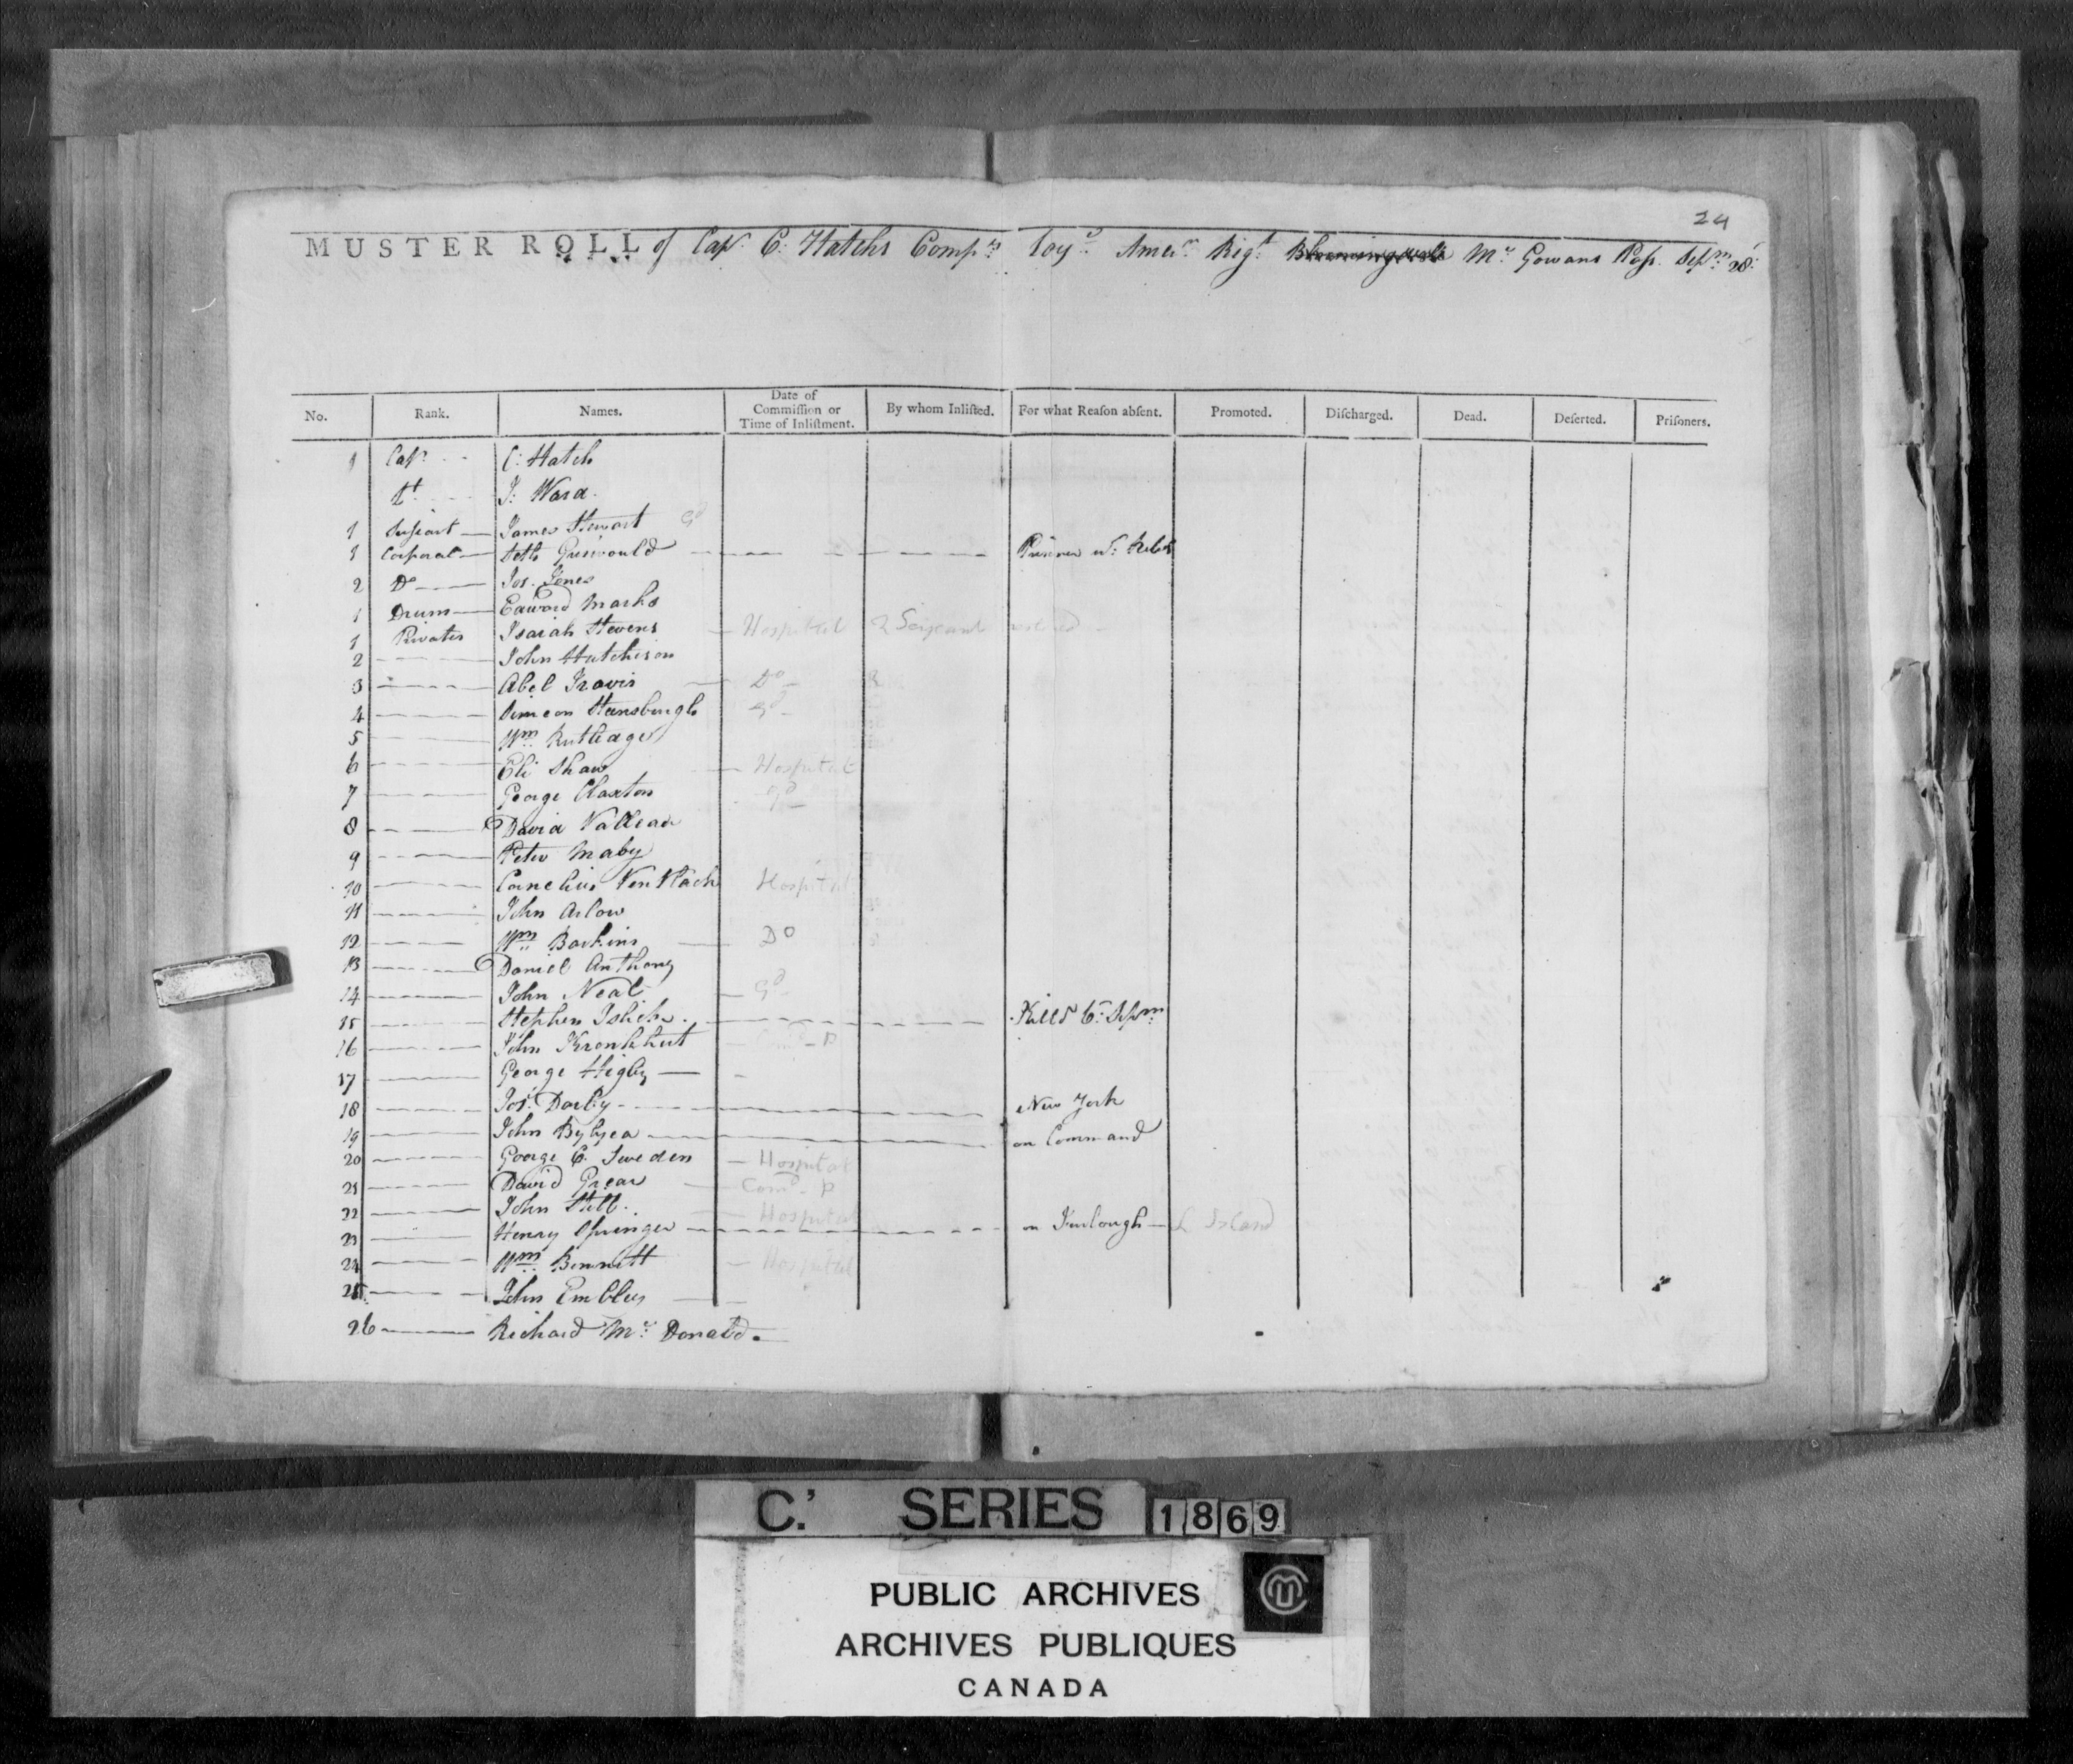 24
MUSTER ROLL of Capt. C: Hatchs Compy. Loyl. Amern. Regt. Bloomingdale Mc Gowans Pass. Sepm. 28.
No. Rank. Names. Date of Commiſſion or Time of Inliſtment. By whom Inliſted. For what Reaſon abſent. Promoted. Diſcharged. Dead. Deſerted. Priſoners.
1 Capt. C: Hatch
Lt J: Ward.
1 Serjeant James Stewart Gd
1 Corporal Seth Griswould Prisoner wt. Rebels
2 Do Jos. Jones
1 Drum Edward Marks
1 Privates Isaiah Stevens Hospital Serjeant
2 John Hutchison
3 Abel Travis Do
4 Simeon Stansburgh Gd
5 Wm Rutledge
6 Eli Shaw Hospital
7 George Claxton Gd
8 David Valleau
9 Peter Maby
10 Cornelius Hospital
11 John Arlow
12 Wm Barkins Do
13 Daniel Anthony
14 John Neal Gd
15 Stephen Killd 6: Sepm
16 John Kronkhut
17 George Higby
18 Jos. Darby New York
19 John Bylyea on Command
20 George C. Sweden Hospital
21 David Grear Comd. P
22 John Still. Hospital
23 Henry Springer on Furlough L Island
24 Wm Bennett Hospital
25 John Embley
26 Richard Mc Donald.
C.' SERIES 1869
PUBLIC ARCHIVES
ARCHIVES PUBLIQUES
CANADA